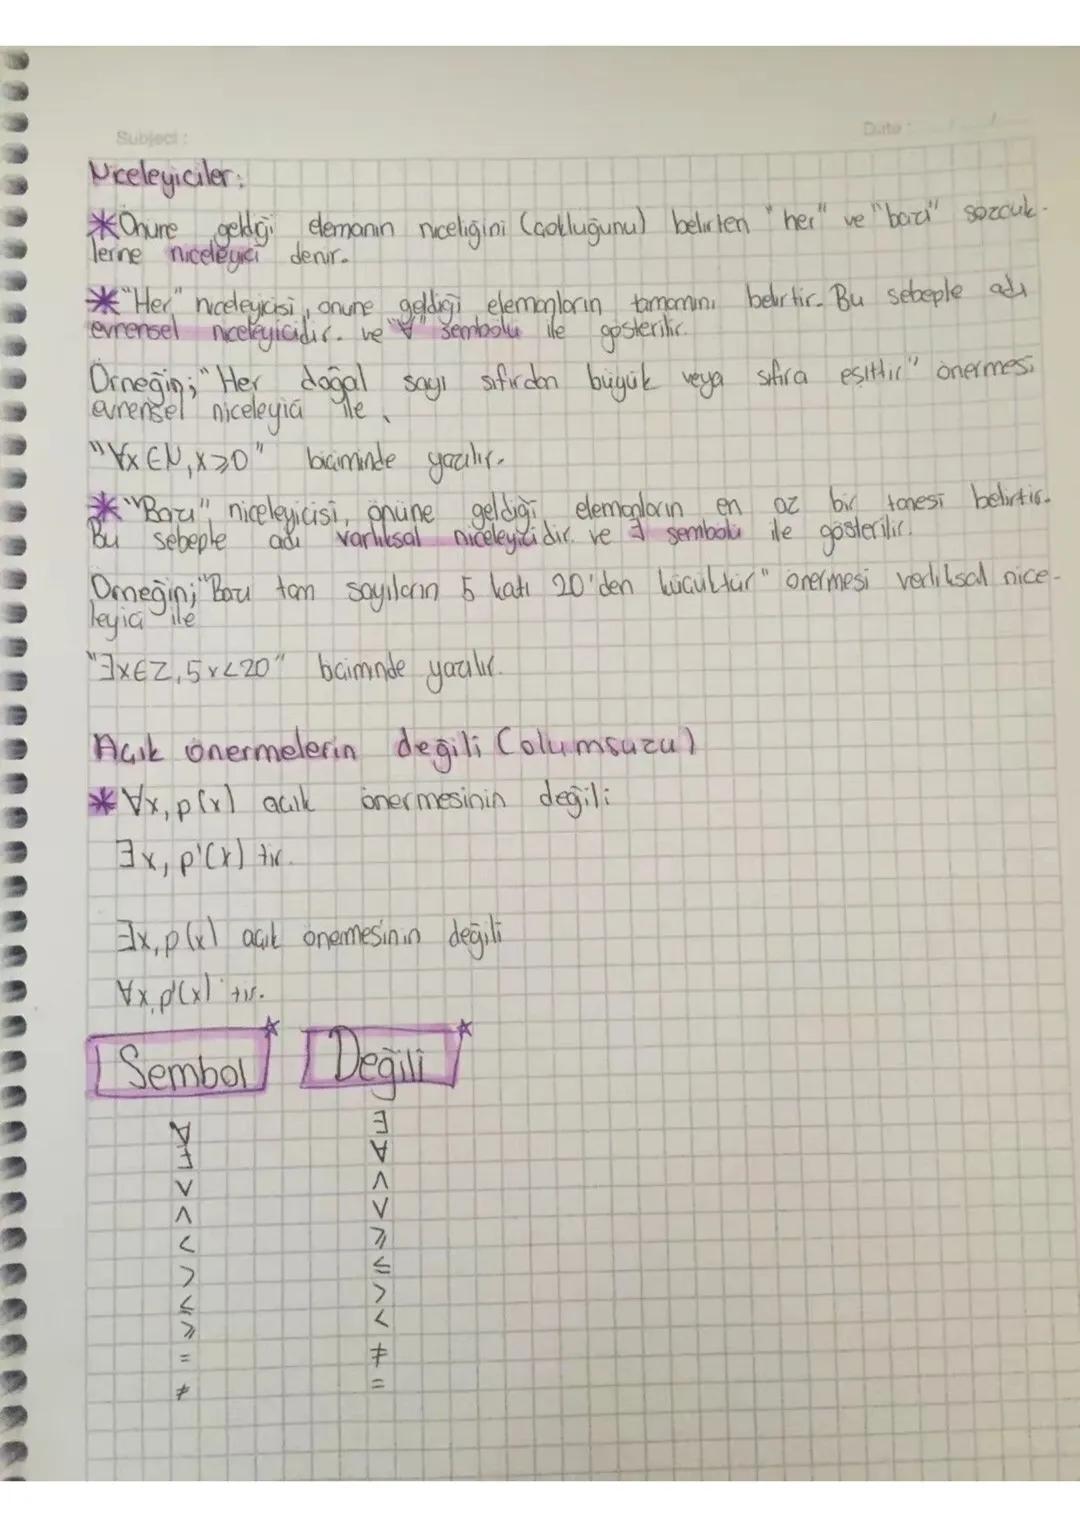 Subject :
Date : / /
Niceleyiciler:
*Önüne geldiği elemanın niceliğini (çokluğunu) belirten "her" ve "bazı" sözcük-
lerine niceleyici denir.
*"Her" niceleyicisi, önüne geldiği elemanların tamamını belirtir. Bu sebeple adı
evrensel niceleyicidir. ve "∀" sembolü ile gösterilir.
Örneğin; "Her doğal sayı sıfırdan büyük veya sıfıra eşittir" önermesi
evrensel niceleyici ile,
"∀x∈N, x⩾0" biçiminde yazılır.
*"Bazı" niceleyicisi, önüne geldiği elemanların en az bir tanesi belirtir.
Bu sebeple adı varlıksal niceleyicidir. ve ∃ sembolü ile gösterilir.
Örneğin; "Bazı tam sayıların 5 katı 20'den küçüktür" önermesi varlıksal nice-
leyici ile
"∃x∈Z, 5x<20" biçiminde yazılır.
Açık önermelerin değili (olumsuzu)
*∀x, p(x) açık önermesinin değili
∃x, p'(x) tir.
∃x, p(x) açık önermesinin değili
∀x, p'(x) tir.
Sembol Değili
∀ ∃
∃ ∀
∨ ∧
∧ ∨
< ⩾
> ≤
≤ >
⩾ <
= ≠
≠ =